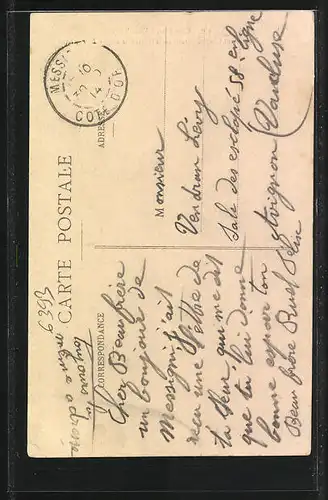 CARTE POSTALE
CORRESPONDANCE
ADRESSE
MESS
COTE D'OR
16
14
6393
toujours
adresse
Cher Beau frère
un bonjour de
Messigni j'ait
recu une lettre de
ta seur qui me dit
que tu lui donne
bonne espoire ton
Beau frère
Monsieur
Vendran Lévy
Sale des
58 em ligne
Avignon (Vaucluse